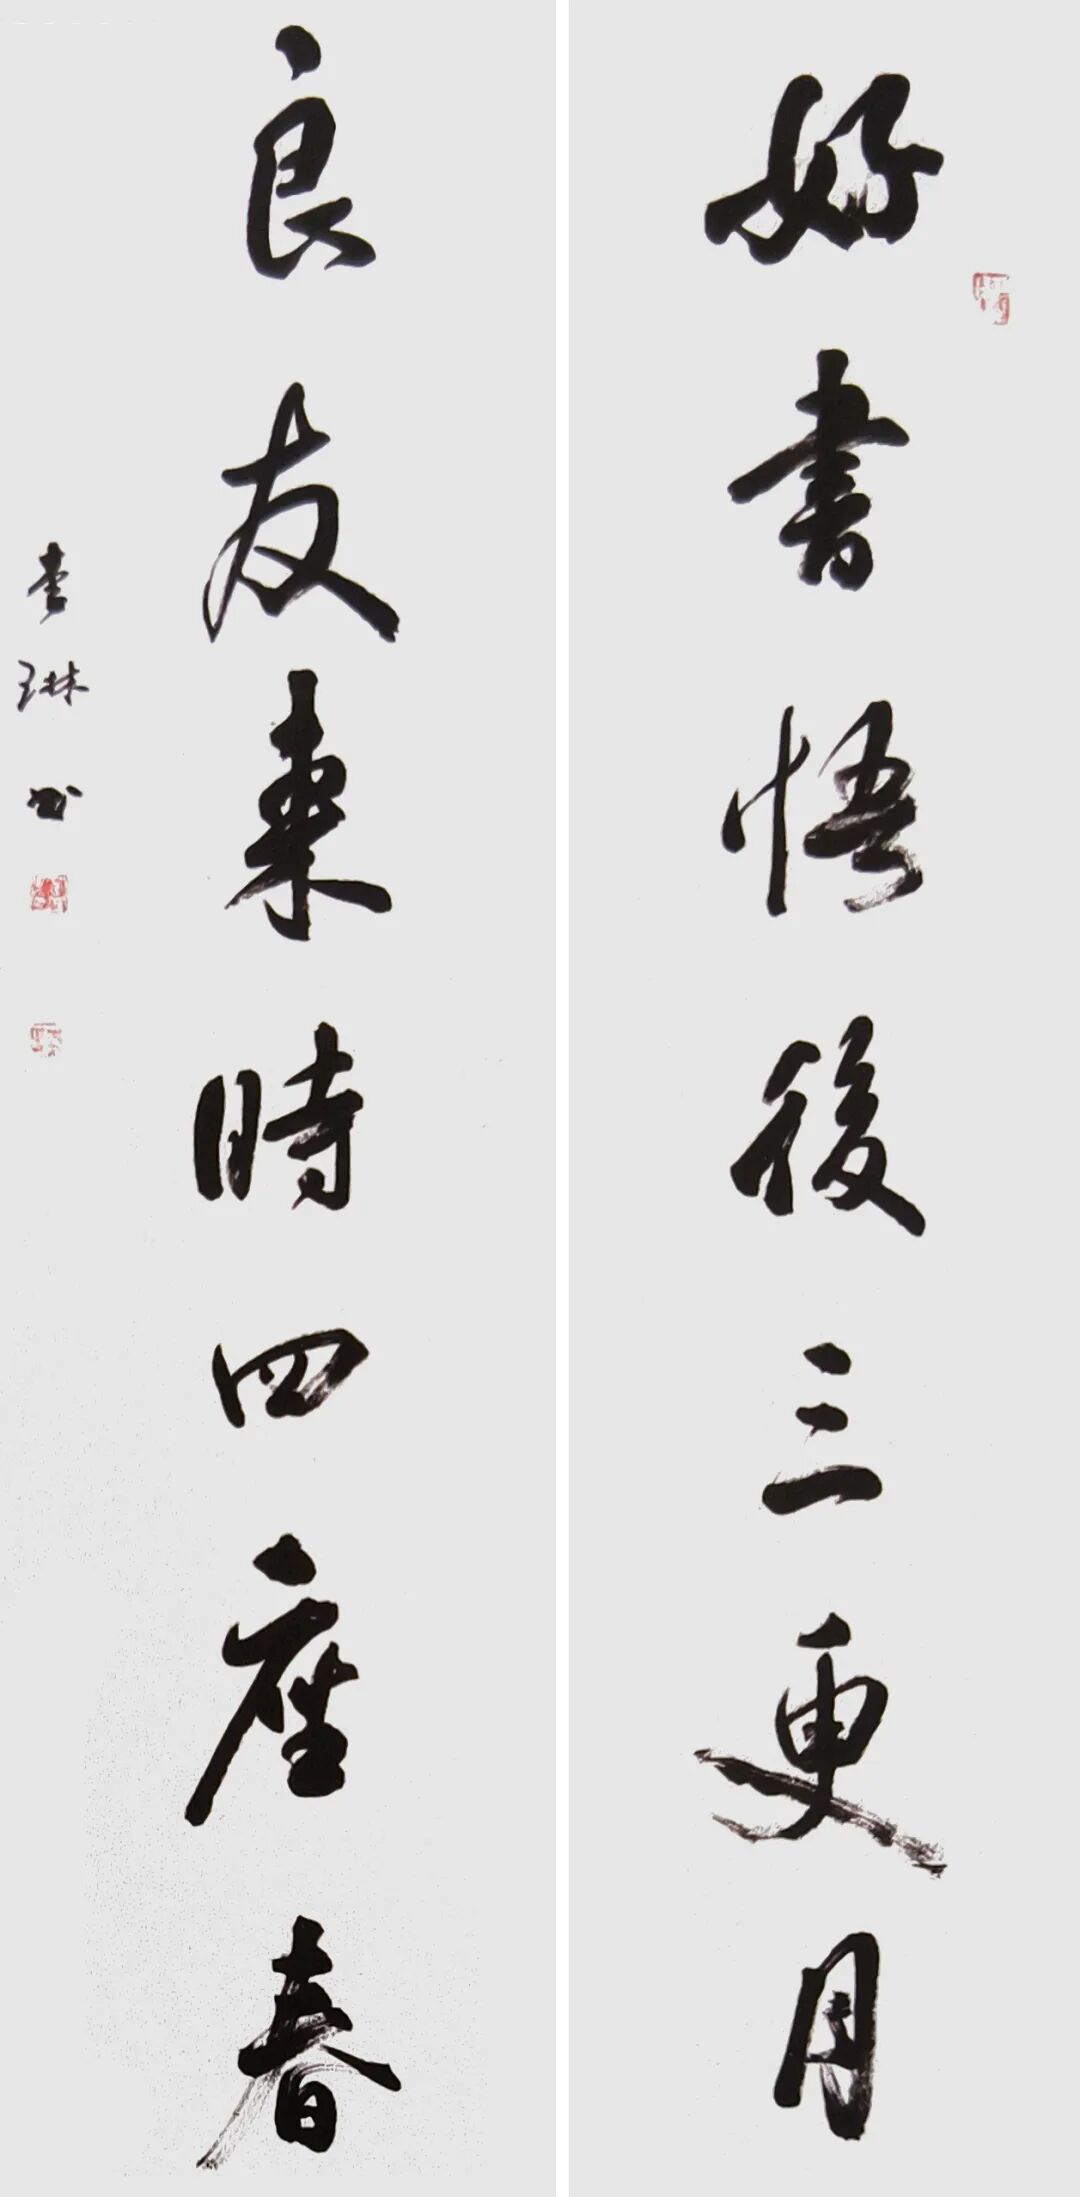 好書悟後三更月
良友來時四座春
李琳书